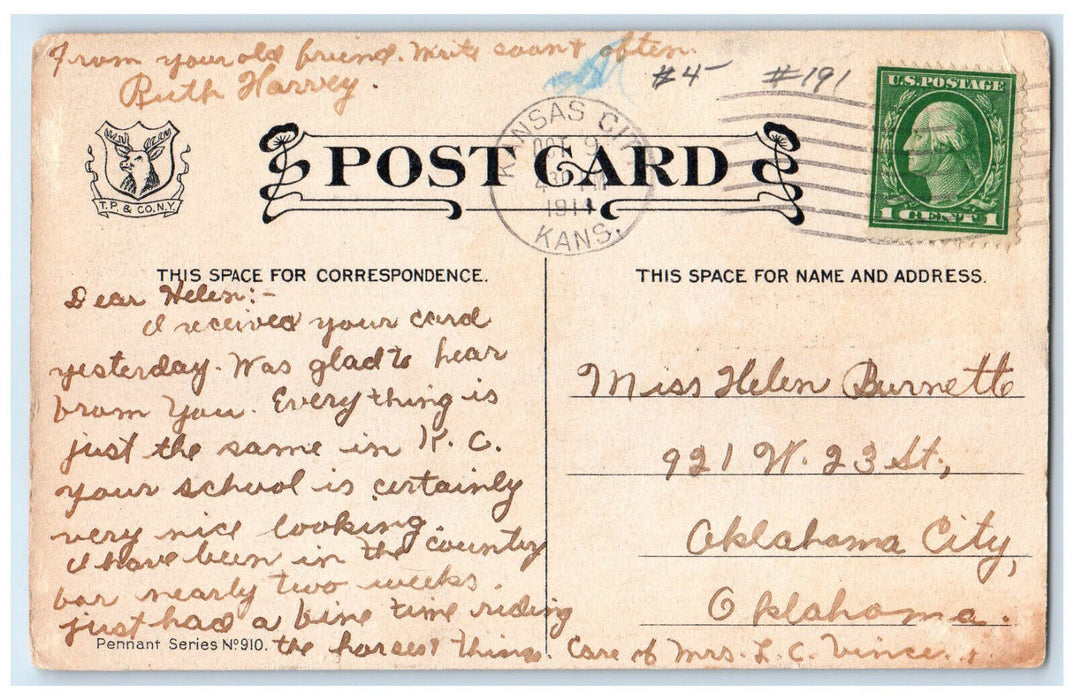 From your old friend. Write soon & often.
Ruth Harvey.
#4 #191
U.S. POSTAGE
1 CENT 1
KANSAS CITY
OCT 9
1914
KANS.
T.P. & CO. N.Y.
POST CARD
THIS SPACE FOR CORRESPONDENCE.
Dear Helen:-
I received your card
yesterday. Was glad to hear
from you. Everything is
just the same in K. C.
your school is certainly
very nice looking.
I have been in the country
for nearly two weeks.
just had a fine time riding
the horses & things.
Pennant Series Nº 910.
THIS SPACE FOR NAME AND ADDRESS.
Miss Helen Burnette
921 W. 23 St,
Oklahoma City,
Oklahoma.
Care of Mrs. L. C. Vince.